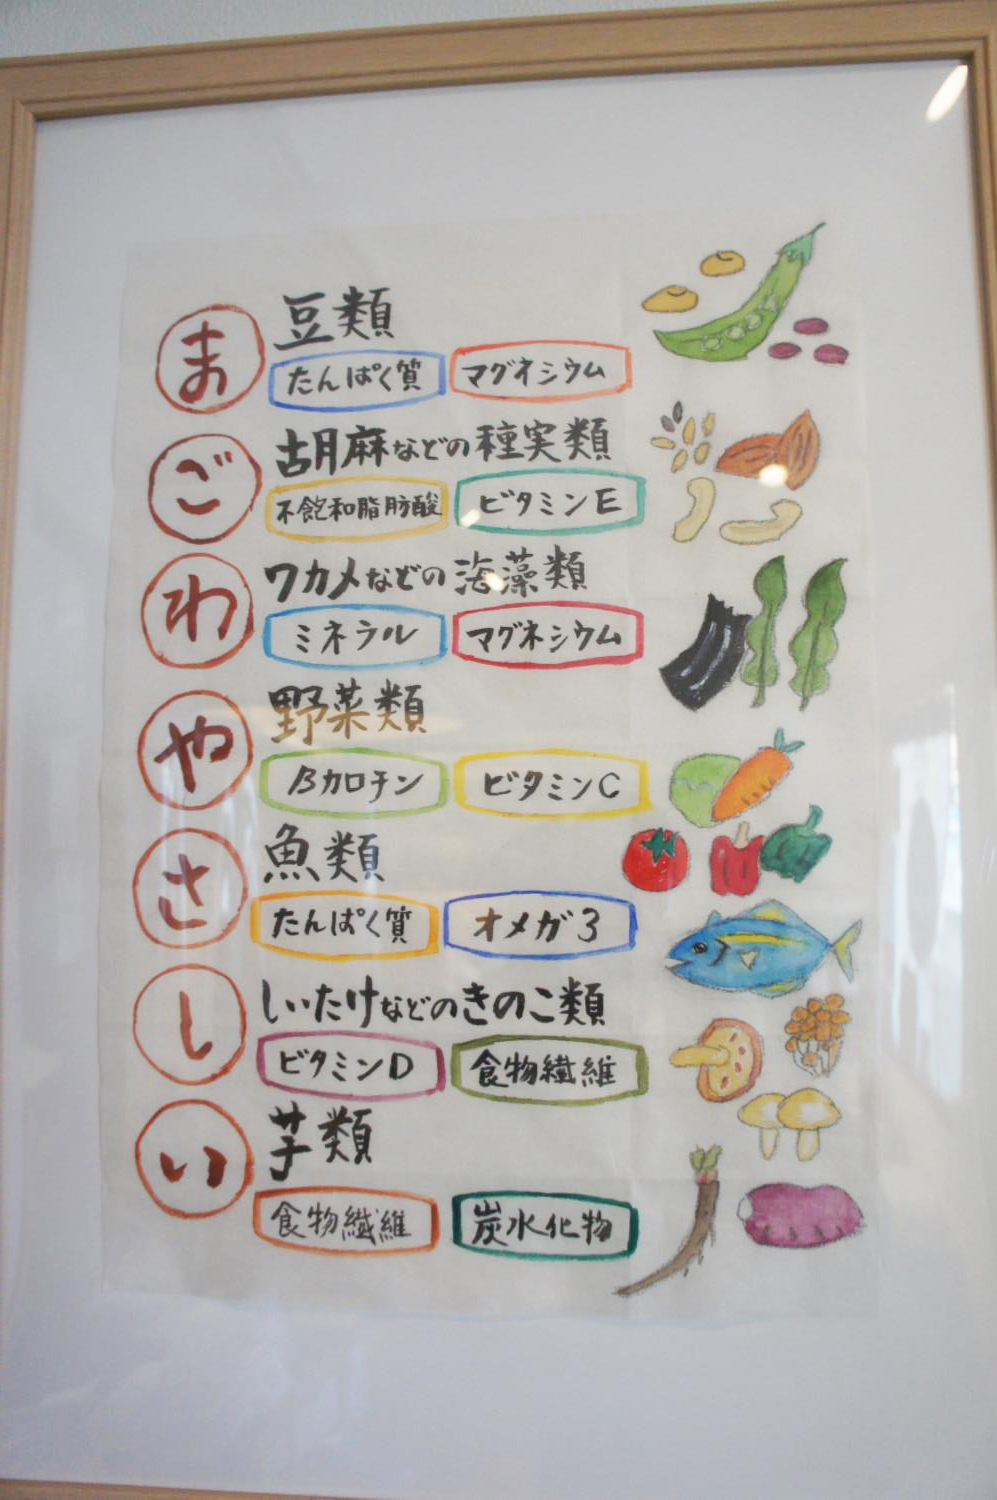 ま 豆類
たんぱく質 マグネシウム
ご 胡麻などの種実類
不飽和脂肪酸 ビタミンE
わ ワカメなどの海藻類
ミネラル マグネシウム
や 野菜類
βカロチン ビタミンC
さ 魚類
たんぱく質 オメガ3
し しいたけなどのきのこ類
ビタミンD 食物繊維
い 芋類
食物繊維 炭水化物